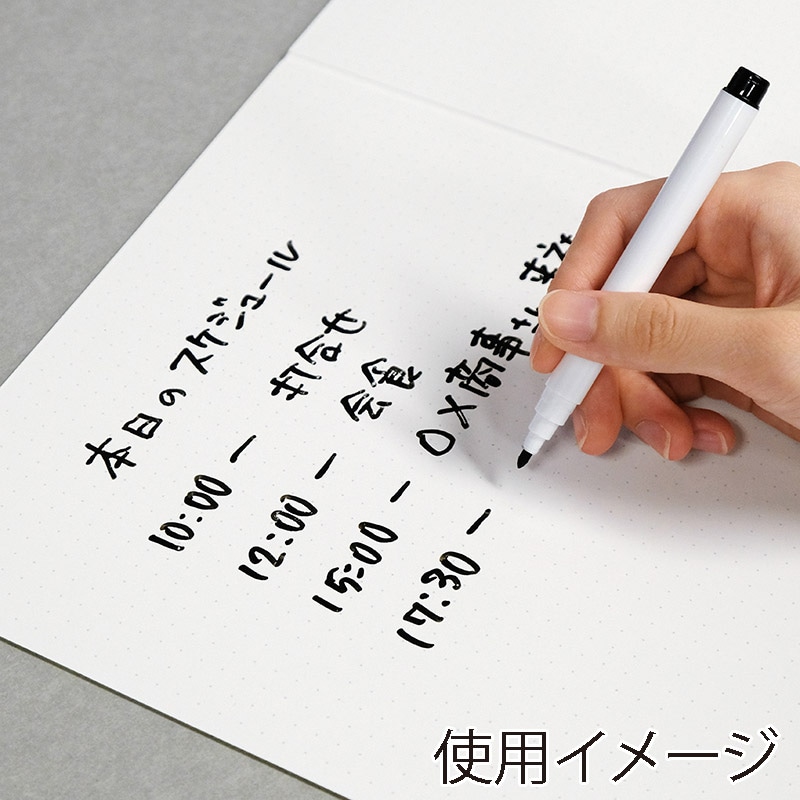 本日のスケジュール
10:00 ー 打合せ
12:00 ー 会食
15:00 ー 〇×商事 来社
17:30 ー
使用イメージ